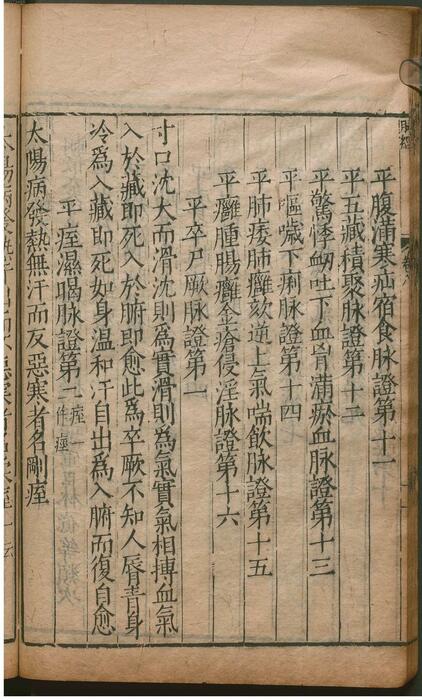 脉經
卷八
平腹滿寒疝宿食脉證第十一
平五藏積聚脉證第十二
平驚悸衂吐下血胷滿瘀血脉證第十三
平嘔噦下痢脉證第十四
平肺痿肺癰欬逆上氣喘飲脉證第十五
平癰腫腸癰金瘡侵淫脉證第十六
平卒尸厥脉證第一
寸口沈大而滑沈則為實滑則為氣實氣相摶血氣
入於藏即死入於腑即愈此為卒厥不知人脣青身
冷為入藏即死如身溫和汗自出為入腑而復自愈
平痙濕暍脉證第二痙一作痓
太陽病發熱無汗而反惡寒者名剛痙